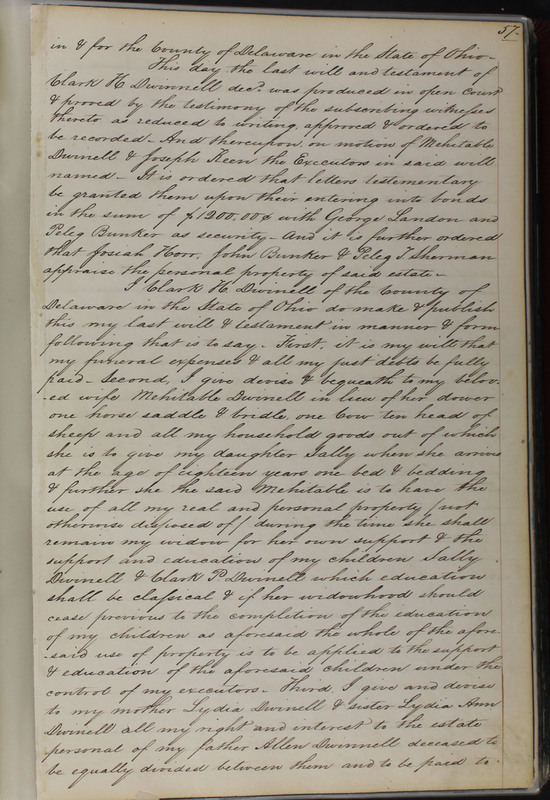 57
in & for the County of Delaware in the State of Ohio-
This day the last will and testament of
Clark H Dwinnell decd was produced in open Court
& proved by the testimony of the subscribing witnesses
thereto as reduced to writing approved & ordered to
be recorded- And thereupon on motion of Mehitable
Dwinell & Joseph Keen the Executors in said will
named- It is ordered that letters testementary
be granted them upon their entering into bonds
in the sum of $1200.00¢ with George Landon and
Peleg Bunker as security- And it is further ordered
that Josiah Horr, John Bunker & Peleg S. Sherman
appraise the personal property of said estate-
I Clark H. Dwinell of the County of
Delaware in the State of Ohio do make & publish
this my last will & testament in manner & form
following that is to say- First, it is my will that
my funeral expenses & all my just debts be fully
paid- Second, I give devise & bequeath to my belov-
ed wife Mehitable Dwinell in lieu of her dower
one horse saddle & bridle, one Cow ten head of
sheep and all my household goods out of which
she is to give my daughter Sally when she arrives
at the age of eighteen years one bed & bedding
& further she the said Mehitable is to have the
use of all my real and personal property (not
otherwise disposed of) during the time she shall
remain my widow for her own support & the
support and education of my children Sally
Dwinell & Clark P. Dwinell which education
shall be classical & if her widowhood should
cease previous to the completion of the education
of my children as aforesaid the whole of the afore-
-said use of property is to be applied to the support
& education of the aforesaid children under the
control of my executors- Third, I give and devise
to my mother Lydia Dwinell & sister Lydia Ann
Dwinell all my right and interest to the estate
personal of my father Allen Dwinnell deceased to
be equally divided between them and to be paid to